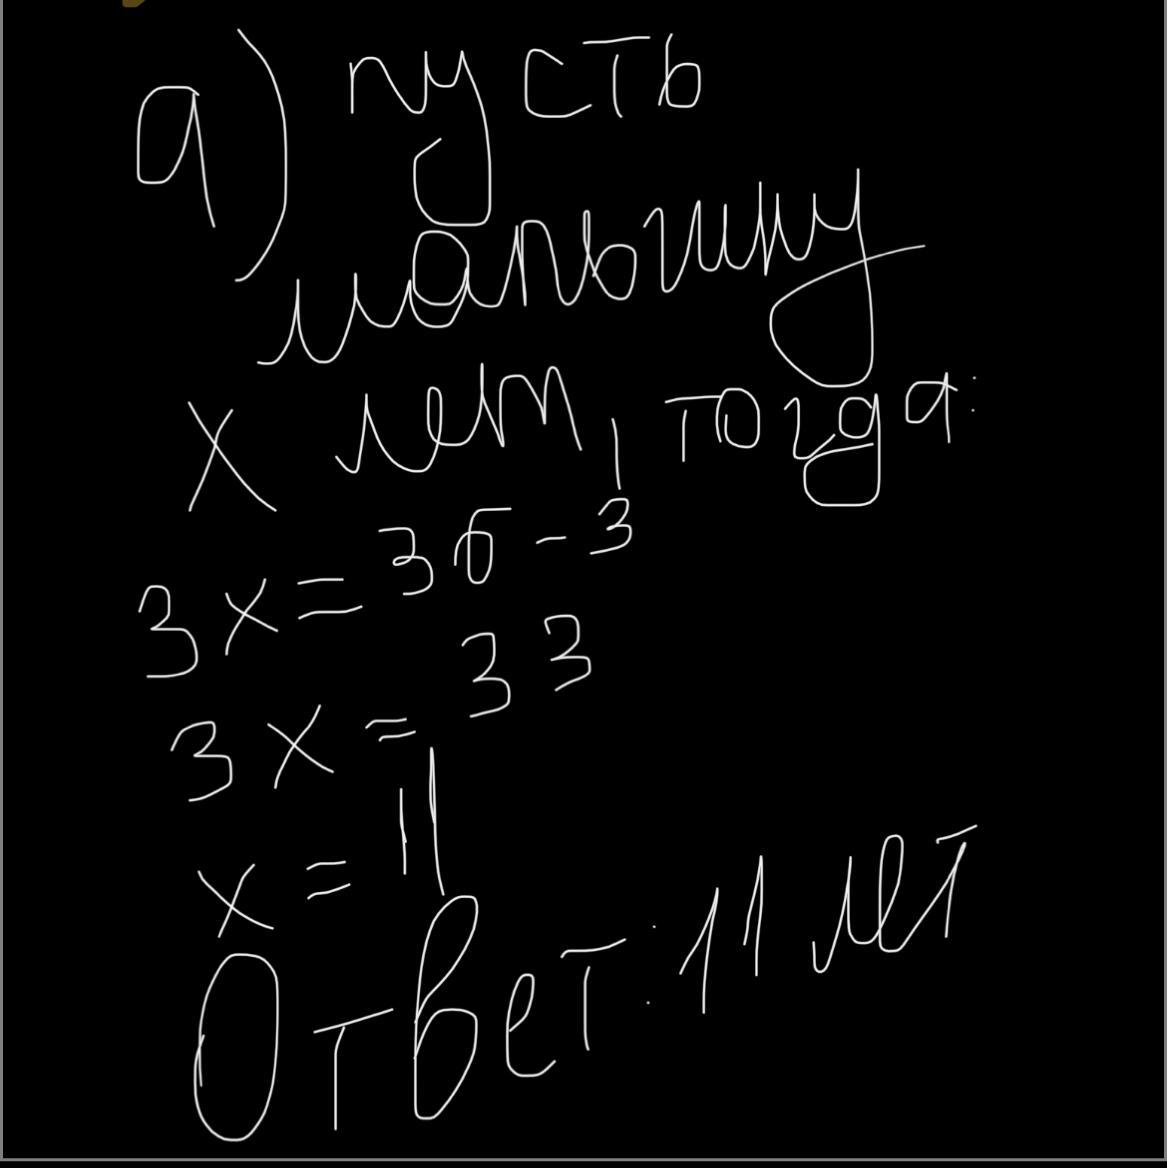 а) пусть
мальчику
х лет, тогда:
3х=36-3
3х=33
х=11
Ответ: 11 лет